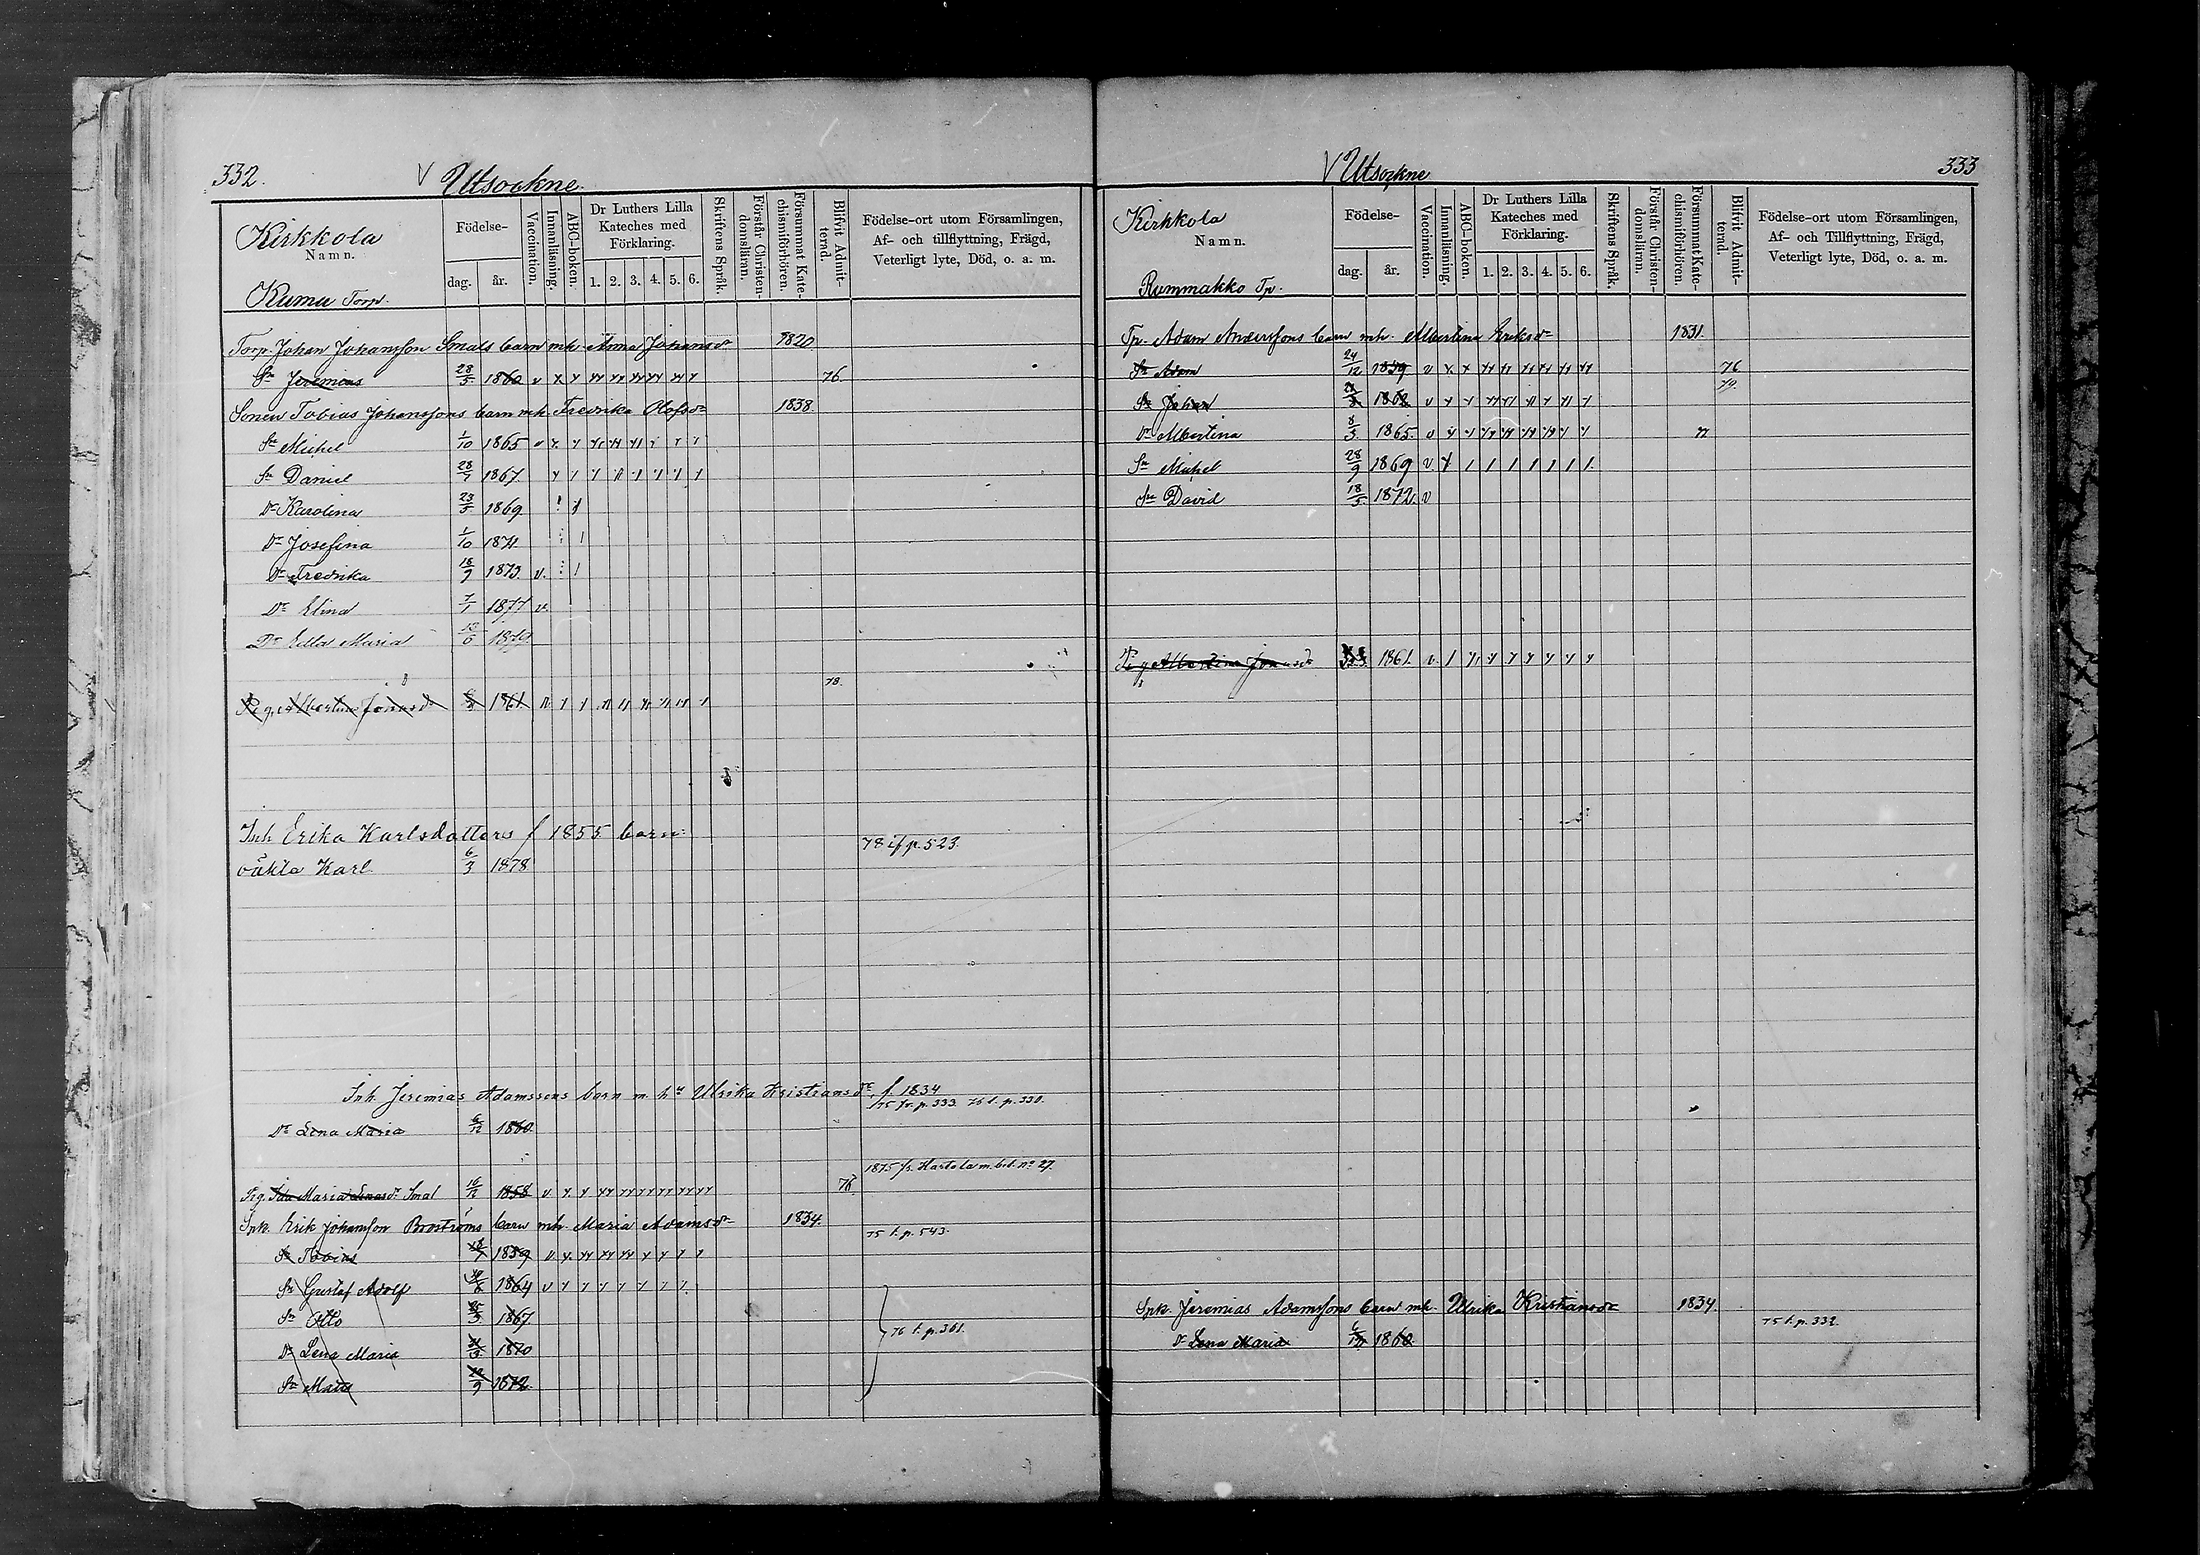 332.
V Utsockne.
Kirkkola
Namn.
Kumu Torp.
Födelse-
dag.
år.
Vaccination.
Innanläsning.
ABC-boken.
Dr Luthers Lilla Kateches med Förklaring.
1. 2. 3. 4. 5. 6.
Skriftens Språk.
Förstår Christendomsläran.
Försummat Katechismiförhören.
Blifvit Admitterad.
Födelse-ort utom Församlingen,
Af- och tillflyttning, Frägd,
Veterligt lyte, Död, o. a. m.
Torp. Johan Johansson Smals barn mh. Anna Johansdr 1820
Sn Jeremias 28/5 1860 76.
Sonen Tobias Johanssons barn mh. Fredrika Olofsdr 1838.
Sn Michel 1/10 1865
Sn Daniel 28/7 1867.
Dr Karolina 23/5 1869.
Dr Josefina 1/10 1871.
Dr Fredrika 16/9 1873. v.
Dr Elina 7/1 1877 v.
Dr Edla Maria 1879.
78.
Pig. Albertina Jonasdr 1861.
Inh. Erika Karlsdotters f 1855 barn:
oäkta Karl. 6/3 1878
78 if p. 523.
Inh. Jeremias Adamssons barn m. hu Ulrika Kristiansdr, f. 1834
75 fr. p. 333. 76 t. p. 330.
Dr Lena Maria 6/12 1860.
1875 fr. Hartola m. bet. no 27.
Pig. Ida Maria Enasdr Smal 16/12 1858 76.
Spk. Erik Johansson Broströms barn mh. Maria Adamsdr 1834.
75 t. p. 543.
Sn Tobias 1859
Sn Gustaf Adolf 1864
Sn Otto 1867
76 t. p. 361.
Dr Lena Maria 1870
Sn Mats 1872.
V Utsockne
333
Kirkkola
Namn.
Rummakko Tp.
Födelse-
dag.
år.
Vaccination.
Innanläsning.
ABC-boken.
Dr Luthers Lilla Kateches med Förklaring.
1. 2. 3. 4. 5. 6.
Skriftens Språk.
Förstår Christendomsläran.
Försummat Katechismiförhören.
Blifvit Admitterad.
Födelse-ort utom Församlingen,
Af- och Tillflyttning, Frägd,
Veterligt lyte, Död, o. a. m.
Tp. Adam Anderssons barn mh. Albertina Eriksdr 1831.
Sn Adam 24/12 1859 76
79.
Sn Johan 1862
Dr Albertina 8/5 1865.
Sn Michel 28/9 1869
Sn David 18/5 1872. v
Pig. Albertina Jonasdr 1861.
Spk. Jeremias Adamssons barn mh. Ulrika Kristiansdr 1834.
75 t. p. 332.
Dr Lena Maria 6/12 1860.